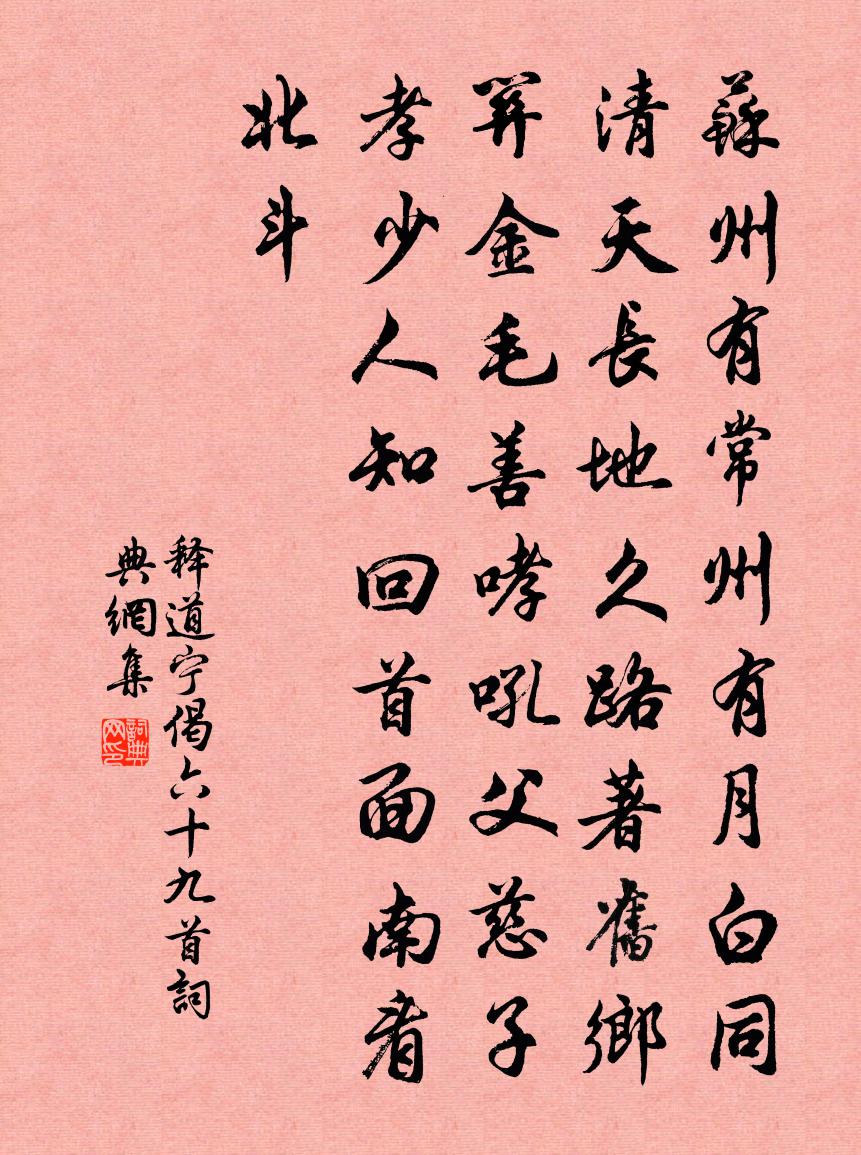 蘇州有常州有月白同
清天長地久路著舊鄉
關金毛善哮吼父慈子
孝少人知回首面南看
北斗
释道宁偈六十九首詞
典網集
詞典
网印